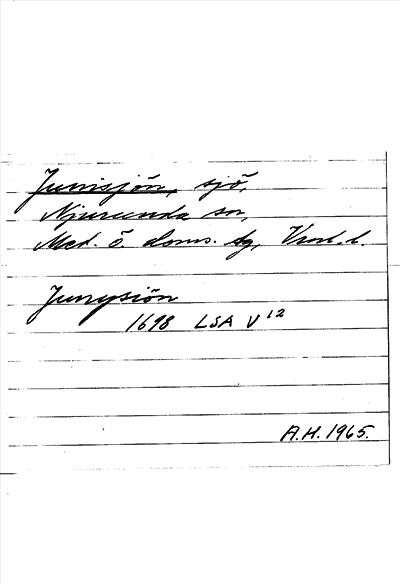 Junisjön, sjö,
Njurunda sn,
Med. ö. doms. tg, Vnrl. l.
Junysiön
1698 LSA V 12
A.H. 1965.